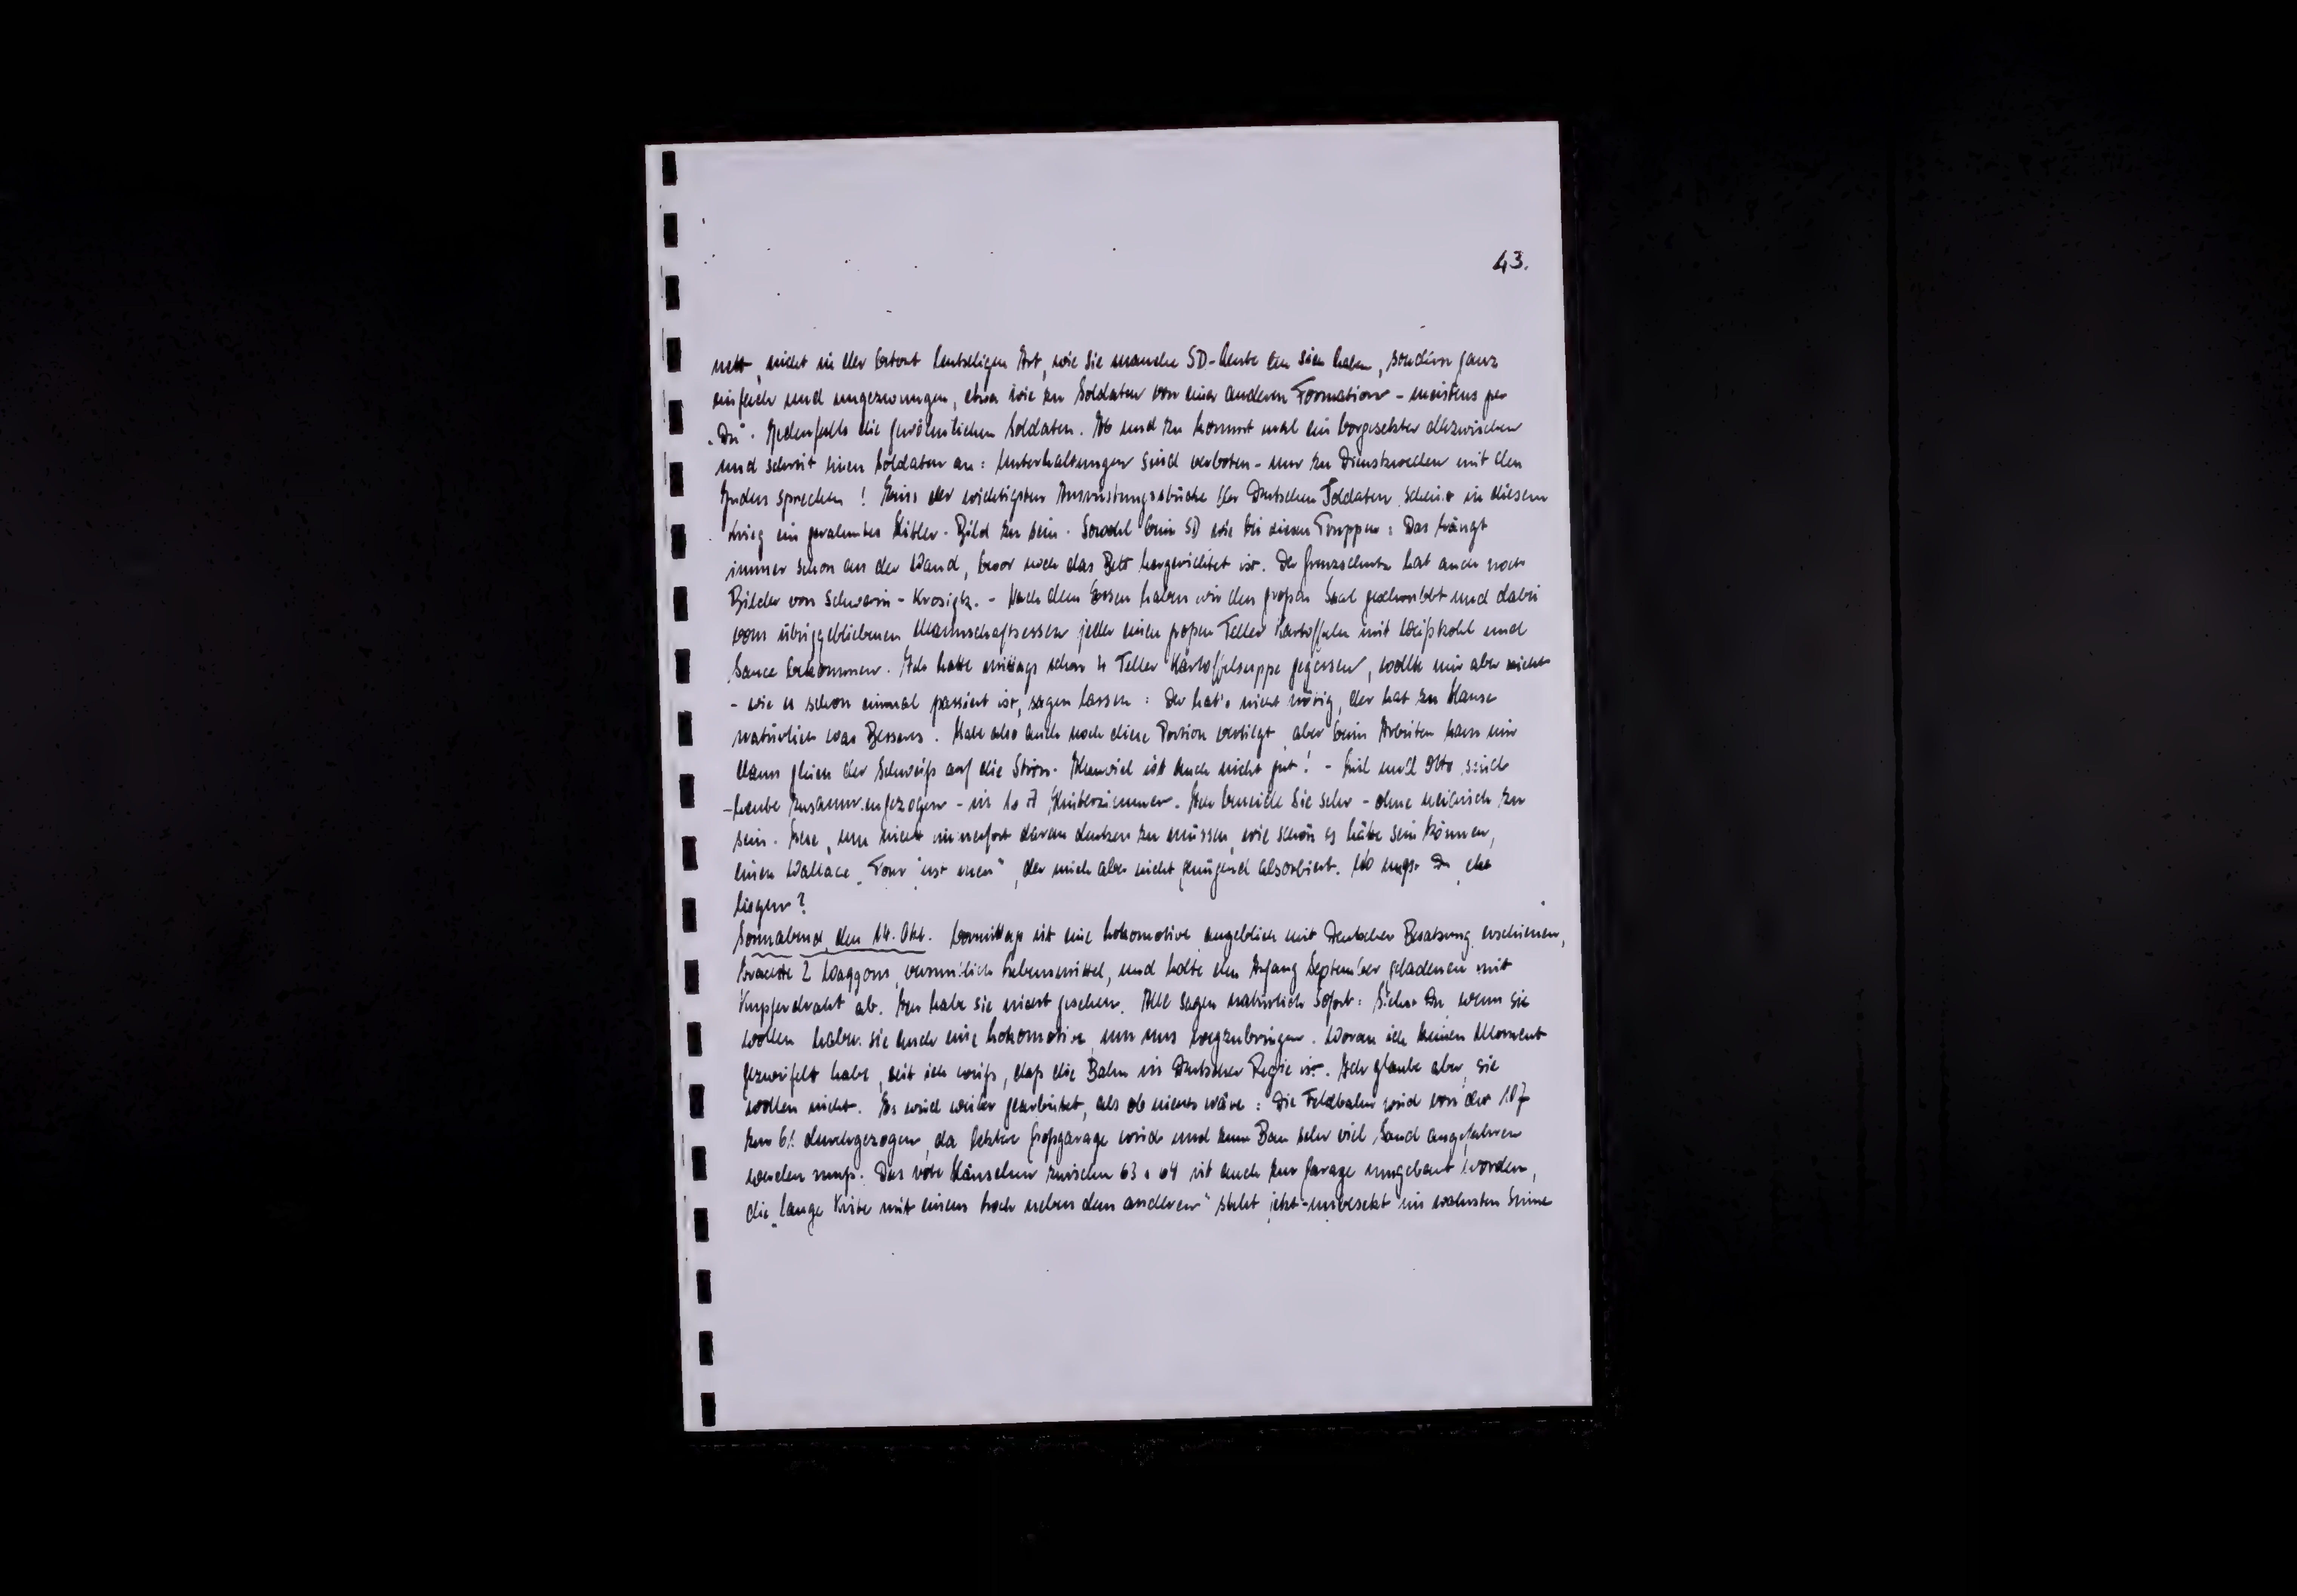 43.
nett, nicht in der betont leutseligen Art, wie sie manche SD-Leute an sich haben, sondern ganz
einfach und ungezwungen, etwa wie zu Soldaten von einer anderen Formation - meistens per
„Du“. Jedenfalls die gewöhnlichen Soldaten. Ab und zu kommt mal ein Vorgesetzter dazwischen
und schreit einen Soldaten an: Unterhaltungen sind verboten - nur zu Dienstzwecken mit den
Juden sprechen! Eins der wichtigsten Ausrüstungsstücke der Deutschen Soldaten scheint in diesem
Krieg ein gerahmtes Hitler-Bild zu sein. Sowohl beim SD wie bei diesen Truppen: Das hängt
immer schon an der Wand, bevor noch das Bett hergerichtet ist. Der Grenzschutz hat auch noch
Bilder von Schwerin-Krosigk. - Nach dem Essen haben wir den großen Saal geschrubbt und dabei
vom übriggebliebenen Mannschaftsessen jeder einen großen Teller Kartoffeln mit Weißkohl und
Sauce bekommen. Ich hatte mittags schon 4 Teller Kartoffelsuppe gegessen, wollte mir aber nicht
- wie es schon einmal passiert ist, sagen lassen: Der hat's nicht nötig, der hat zu Hause
natürlich was Besseres. Habe also auch noch diese Portion vertilgt, aber beim Arbeiten kam mir
dann gleich der Schweiß auf die Stirn. Allzuviel ist auch nicht gut! - und Otto sind
heute zusammengezogen - in 1017 Hinterzimmer. Ich beneide sie sehr - ohne neidisch zu
sein. Lese, um nicht immerfort daran denken zu müssen, wie schön es hätte sein können,
einen Wallace „Four just men“, der mich aber nicht genügend absorbiert. Wo magst Du
liegen?
Sonnabend, den 14. Okt. Vormittags ist eine Lokomotive angeblich mit Deutscher Besatzung erschienen,
brachte 2 Waggons, vermutlich Lebensmittel, und holte den Anfang September geladenen mit
Kupferdraht ab. Ich habe sie nicht gesehen. Alle sagen natürlich sofort: Siehst Du, wenn sie
wollen haben sie auch eine Lokomotive, um uns wegzubringen. Woran ich keinen Moment
gezweifelt habe, seit ich weiß, daß die Bahn in Deutscher Regie ist. Ich glaube aber, sie
wollen nicht. Es wird weiter gearbeitet, als ob nichts wäre: Die Feldbahn wird von der 107
zur 61 durchgezogen, da letztere Großgarage wird und zum Bau sehr viel Sand angefahren
werden muß. Das rote Häuschen zwischen 63 u 64 ist auch zur Garage umgebaut worden,
die „lange Kiste mit einem Loch neben dem anderen“ steht jetzt - unbesetzt im wahrsten Sinne